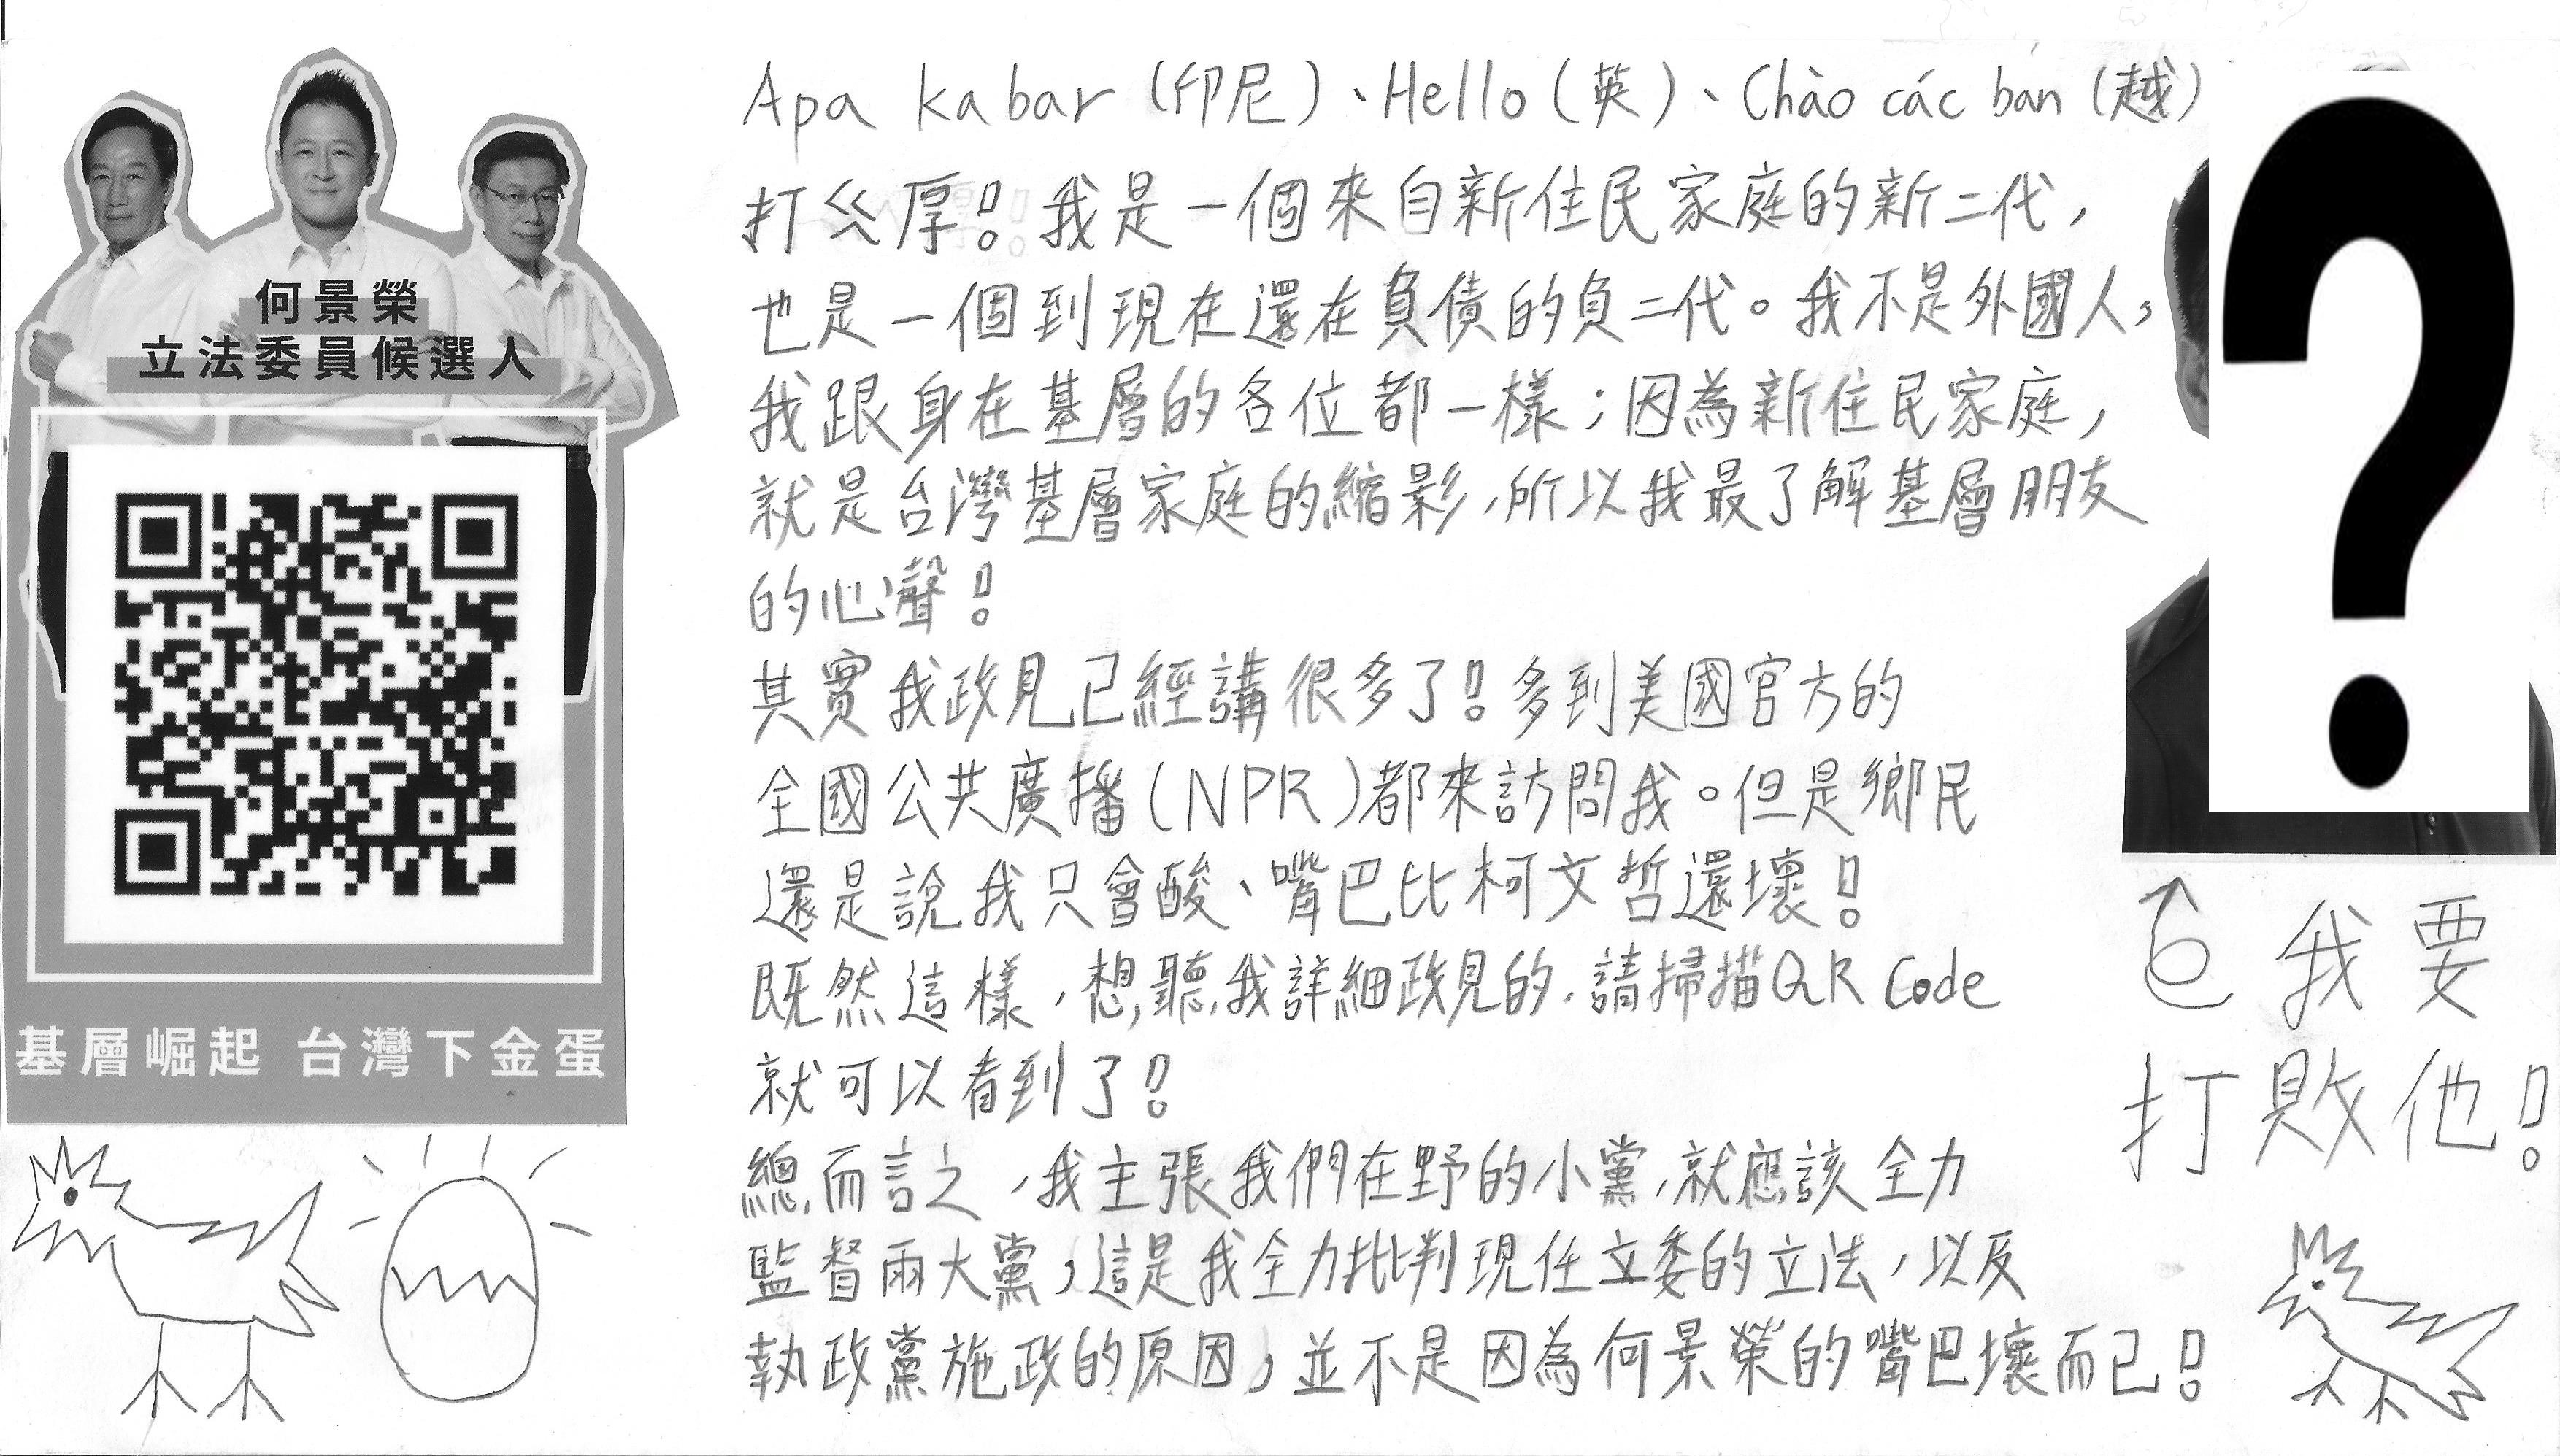 何景榮
立法委員候選人
基層崛起 台灣下金蛋
Apa kabar (印尼)、Hello (英)、Chào các bán (越)
打ㄍㄍ厚！我是一個來自新住民家庭的新二代，
也是一個到現在還在負債的負二代。我不是外國人，
我跟身在基層的各位都一樣；因為新住民家庭，
就是台灣基層家庭的縮影，所以我最了解基層朋友
的心聲！
其實我政見已經講很多了！多到美國官方的
全國公共廣播(NPR)都來訪問我。但是鄉民
還是說我只會酸、嘴巴比柯文哲還壞！
既然這樣，想聽我詳細政見的，請掃描QR Code
就可以看到了！
總而言之，我主張我們在野的小黨，就應該全力
監督兩大黨，這是我全力批判現任立委的立法，以及
執政黨施政的原因，並不是因為何景榮的嘴巴壞而已！
?
我要
打敗他！